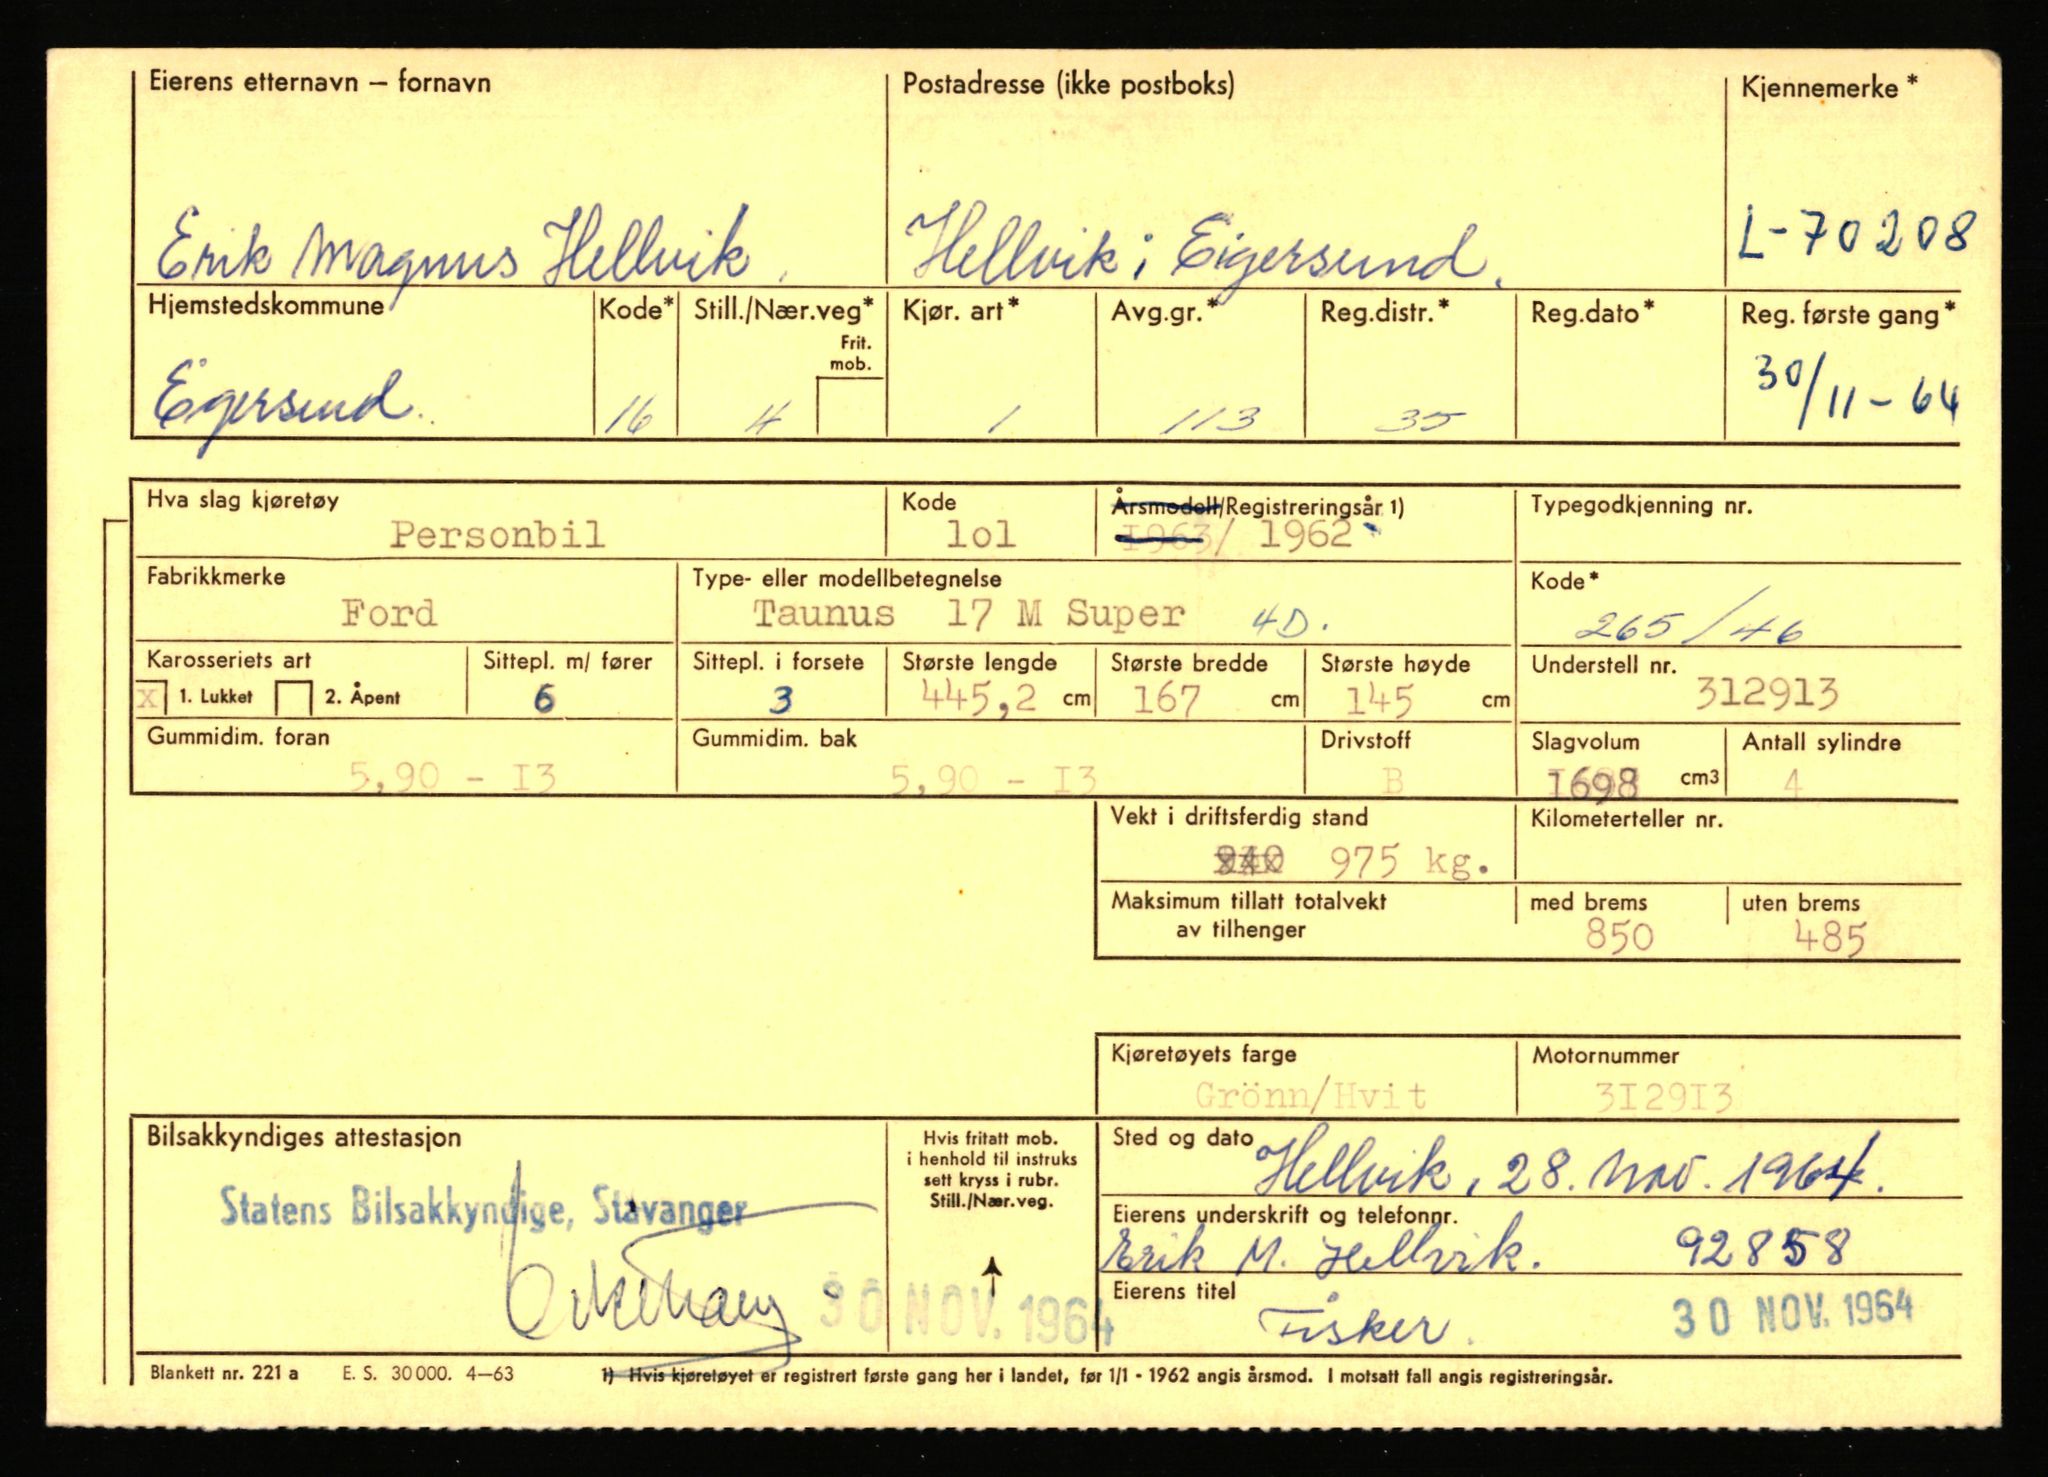 Eierens etternavn – fornavn Postadresse (ikke postboks) Kjennemerke*
Erik Magnus Hellvik. Hellvik i Eigersund. L-70208
Hjemstedskommune Kode* Still./Nær.veg* Kjør. art* Avg.gr.* Reg.distr.* Reg.dato* Reg. første gang*
Frit.
mob.
Egersund. 16 4 1 113 35 30/11-64
Hva slag kjøretøy Kode Årsmodell/Registreringsår 1) Typegodkjenning nr.
Personbil lol I963/ 1962
Fabrikkmerke Type- eller modellbetegnelse Kode*
Ford Taunus 17 M Super 4D. 265/46
Karosseriets art Sittepl. m/ fører Sittepl. i forsete Største lengde Største bredde Største høyde Understell nr.
X 1. Lukket 2. Åpent 6 3 445,2 cm 167 cm 145 cm 312913
Gummidim. foran Gummidim. bak Drivstoff Slagvolum Antall sylindre
5,90 - I3 5,90 - I3 B 1698 cm3 4
Vekt i driftsferdig stand Kilometerteller nr.
940 975 kg.
Maksimum tillatt totalvekt med brems uten brems
av tilhenger 850 485
Kjøretøyets farge Motornummer
Grönn/Hvit 3I29I3
Bilsakkyndiges attestasjon Hvis fritatt mob. Sted og dato
i henhold til instruks Hellvik, 28. Nov. 1964.
sett kryss i rubr.
Still./Nær.veg.
Statens Bilsakkyndige, Stavanger Eierens underskrift og telefonnr.
Erik M. Hellvik. 92858
Eierens titel
30 NOV. 1964 Fisker. 30 NOV. 1964
Blankett nr. 221 a E. S. 30 000. 4–63 1) Hvis kjøretøyet er registrert første gang her i landet, før 1/1 - 1962 angis årsmod. I motsatt fall angis registreringsår.